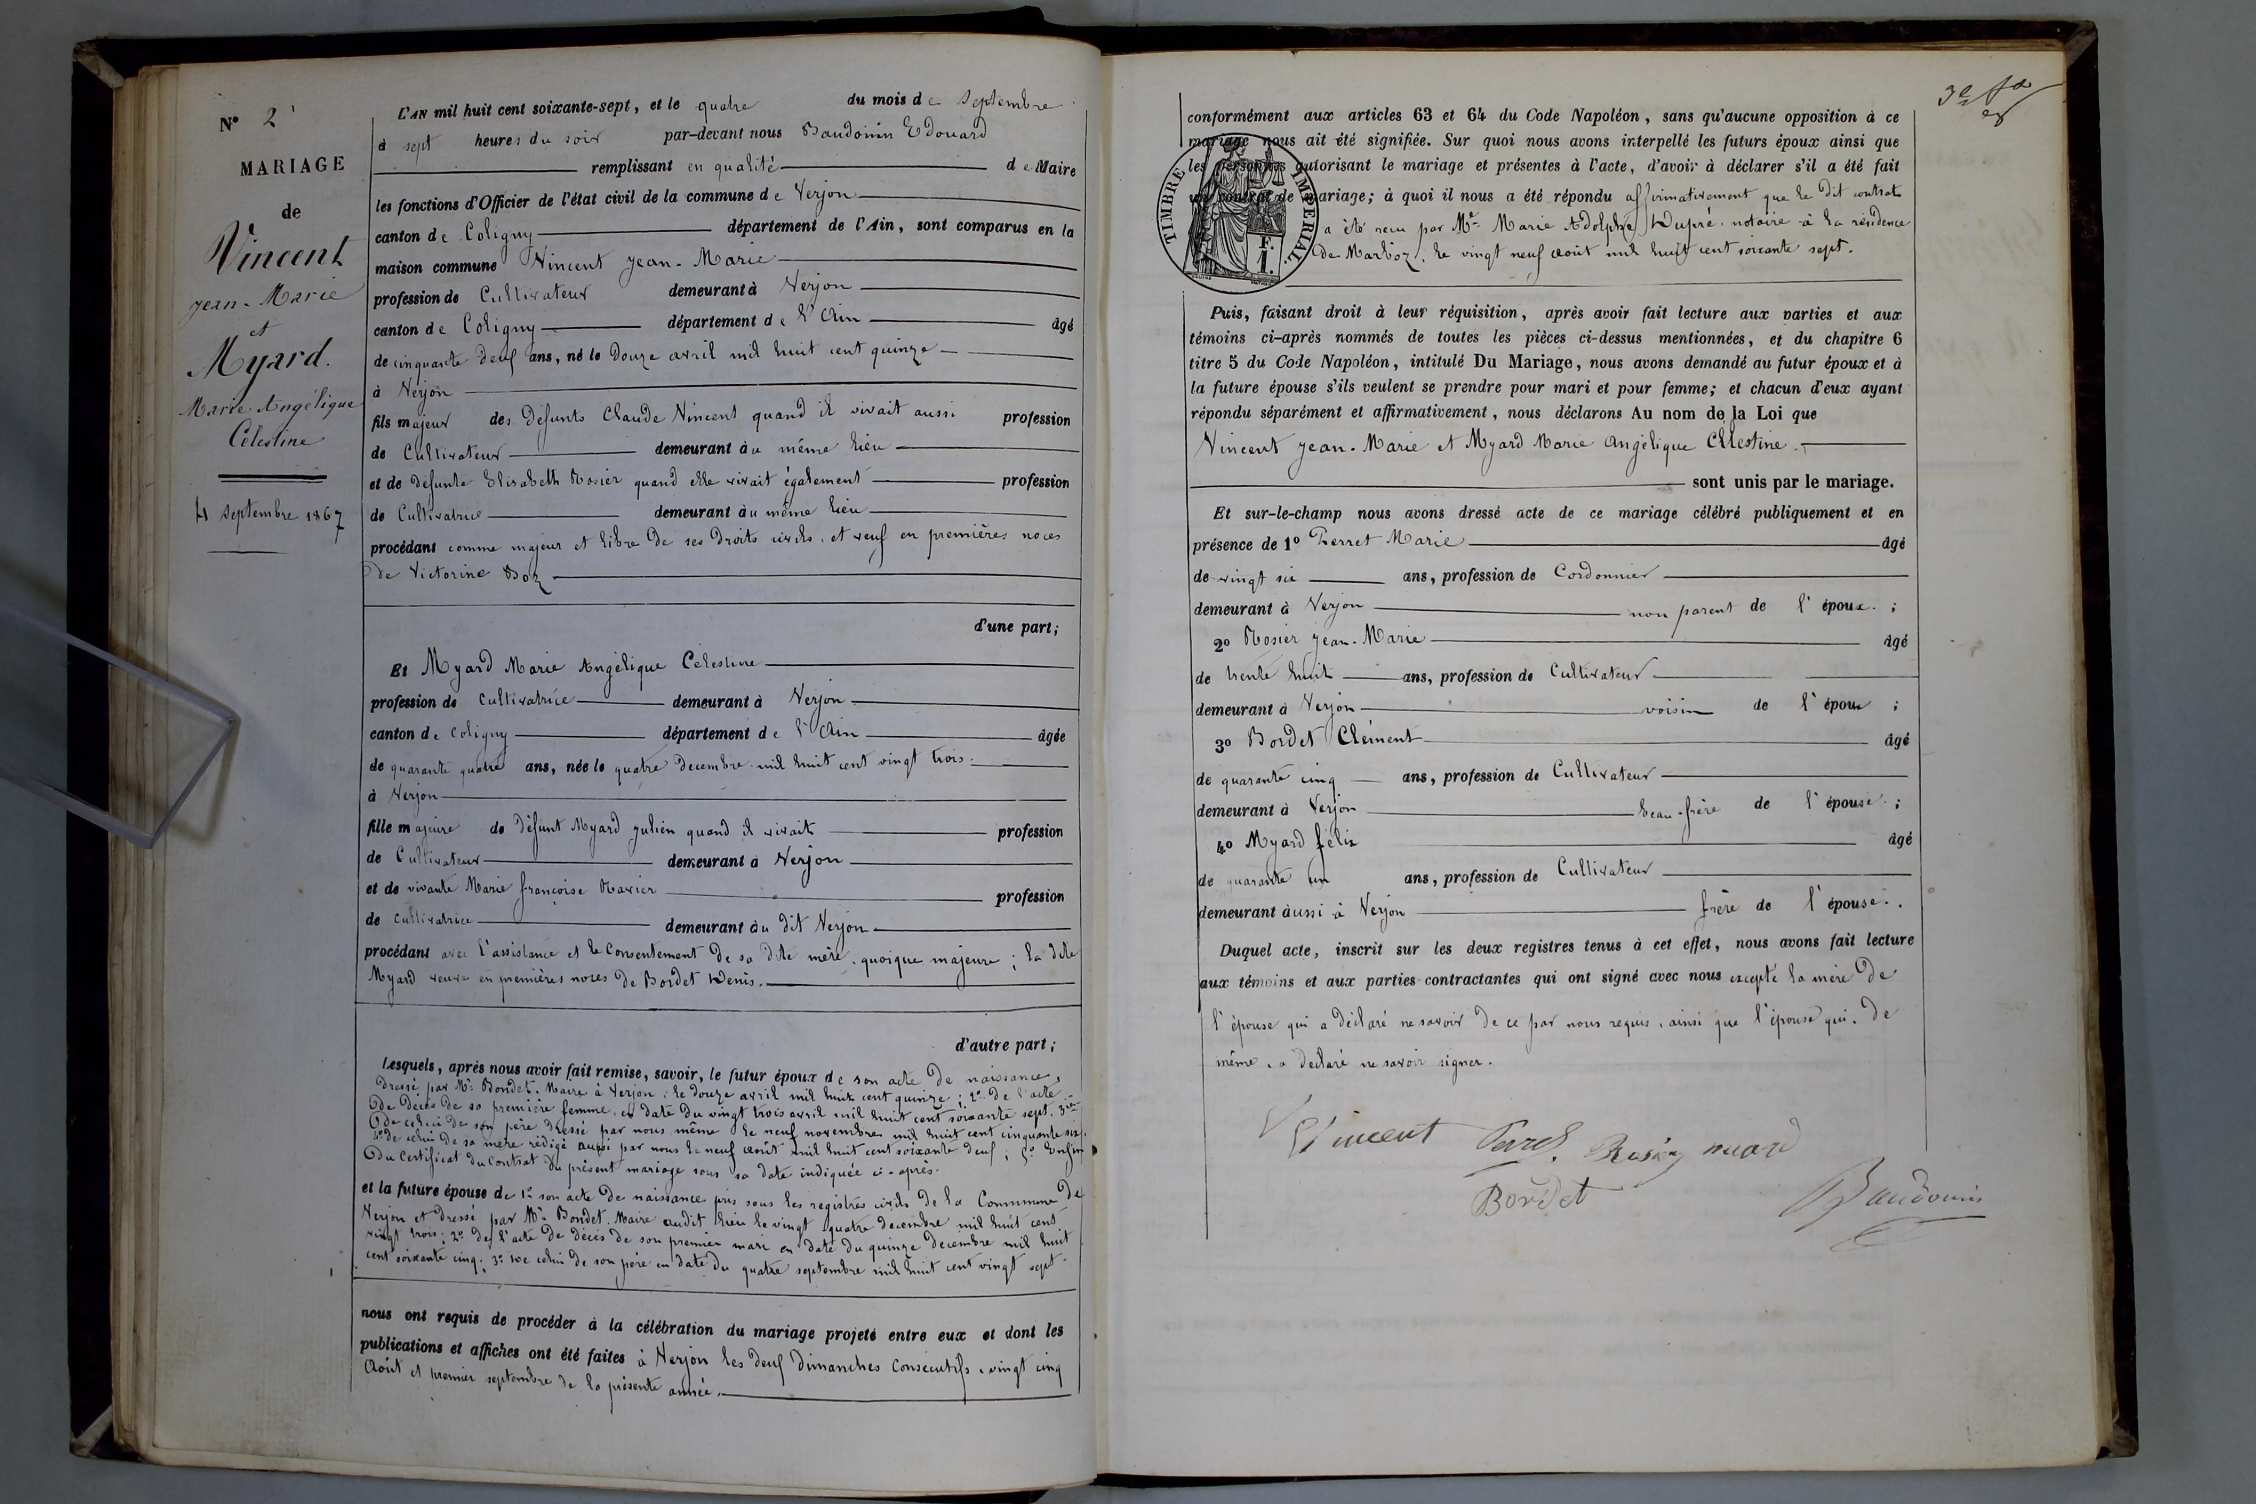 N° 2
MARIAGE
de
Vincent
Jean-Marie
et
Myard.
Marie Angélique
Célestine
4 septembre 1867
L'AN mil huit cent soixante-sept, et le quatre du mois de Septembre
à sept heures du soir par-devant nous Baudouin Edouard
remplissant en qualité de Maire
les fonctions d'Officier de l'état civil de la commune de Verjon
canton de Coligny département de l'Ain, sont comparus en la
maison commune Vincent Jean-Marie
profession de Cultivateur demeurant à Verjon
canton de Coligny département de l'Ain âgé
de cinquante deux ans, né le Douze avril mil huit cent quinze
à Verjon
fils majeur des défunts Claude Vincent quand il vivait aussi profession
de Cultivateur demeurant au même lieu
et de défunte Elisabeth Rosier quand elle vivait également profession
de Cultivatrice demeurant au même lieu
procédant comme majeur et libre de ses droits civils. et veuf en premières noces
de Victorine Boz
d'une part;
Et Myard Marie Angélique Célestine
profession de cultivatrice demeurant à Verjon
canton de Coligny département de l'Ain âgée
de quarante quatre ans, née le quatre decembre mil huit cent vingt trois.
à Verjon
fille majeure de défunt Myard Julien quand il vivait profession
de Cultivateur demeurant à Verjon
et de vivante Marie françoise profession
de cultivatrice demeurant au dit Verjon
procédant avec l'assistance et le Consentement de sa dite mère. quoique majeure; la dite
Myard veuve en premières noces de Bordet Denis.
d'autre part;
Lesquels, après nous avoir fait remise, savoir, le futur époux de son acte de naissance,
dressé par Mr Bondet. Maire à Verjon. le douze avril mil huit cent quinze; 2° De l'acte
de décès de sa première femme. en date du vingt trois avril mil huit cent soixante sept. 3°
de celui de son père dressé par nous même le neuf novembre mil huit cent cinquante six.
4° de celui de sa mère rédigé aussi par nous le neuf août mil huit cent soixante deux; 5° Enfin
du Certificat du Contrat du présent mariage sous sa date indiquée ci-après.
et la future épouse de 1° son acte de naissance pris sous les registres civils de la Commune de
Verjon et dressé par Mr Bondet. Maire audit lieu le vingt quatre decembre mil huit cent
vingt trois; 2° de l'acte de décès de son premier mari en date du quinze decembre mil huit
cent soixante cinq; 3° de celui de son père en date du quatre septembre mil huit cent vingt sept.
nous ont requis de procéder à la célébration du mariage projeté entre eux et dont les
publications et affiches ont été faites à Verjon les deux dimanches consecutifs. vingt cinq
Août et premier septembre de la présente année.
conformément aux articles 63 et 64 du Code Napoléon, sans qu'aucune opposition à ce
mariage nous ait été signifiée. Sur quoi nous avons interpellé les futurs époux ainsi que
les personnes autorisant le mariage et présentes à l'acte, d'avoir à déclarer s'il a été fait
un contrat de mariage; à quoi il nous a été répondu affirmativement que le dit contrat
a été reçu par Me Marie Adolphe Dupré. notaire à la résidence
de Marboz. le vingt neuf août mil huit cent soixante sept.
TIMBRE IMPERIAL.
1 F.
Puis, faisant droit à leur réquisition, après avoir fait lecture aux parties et aux
témoins ci-après nommés de toutes les pièces ci-dessus mentionnées, et du chapitre 6
titre 5 du Code Napoléon, intitulé Du Mariage, nous avons demandé au futur époux et à
la future épouse s'ils veulent se prendre pour mari et pour femme; et chacun d'eux ayant
répondu séparément et affirmativement, nous déclarons Au nom de la Loi que
Vincent Jean-Marie et Myard Marie Angélique Célestine.
sont unis par le mariage.
Et sur-le-champ nous avons dressé acte de ce mariage célébré publiquement et en
présence de 1° Perret Marie âgé
de vingt six ans, profession de Cordonnier
demeurant à Verjon non parent de l'époux.;
2° Rosier Jean-Marie âgé
de trente huit ans, profession de Cultivateur
demeurant à Verjon voisin de l'époux;
3° Bordet Clément âgé
de quarante cinq ans, profession de Cultivateur
demeurant à Verjon beau-frère de l'épouse.;
4° Myard félix âgé
de quarante un ans, profession de Cultivateur
demeurant aussi à Verjon frère de l'épouse..
Duquel acte, inscrit sur les deux registres tenus à cet effet, nous avons fait lecture
aux témoins et aux parties contractantes qui ont signé avec nous excepté la mère de
l'épouse qui a déclaré ne savoir de ce par nous requis. ainsi que l'épouse qui. de
même. a declaré ne savoir signer.
Vincent Perret. Rosier miard
Bordet Baudouin